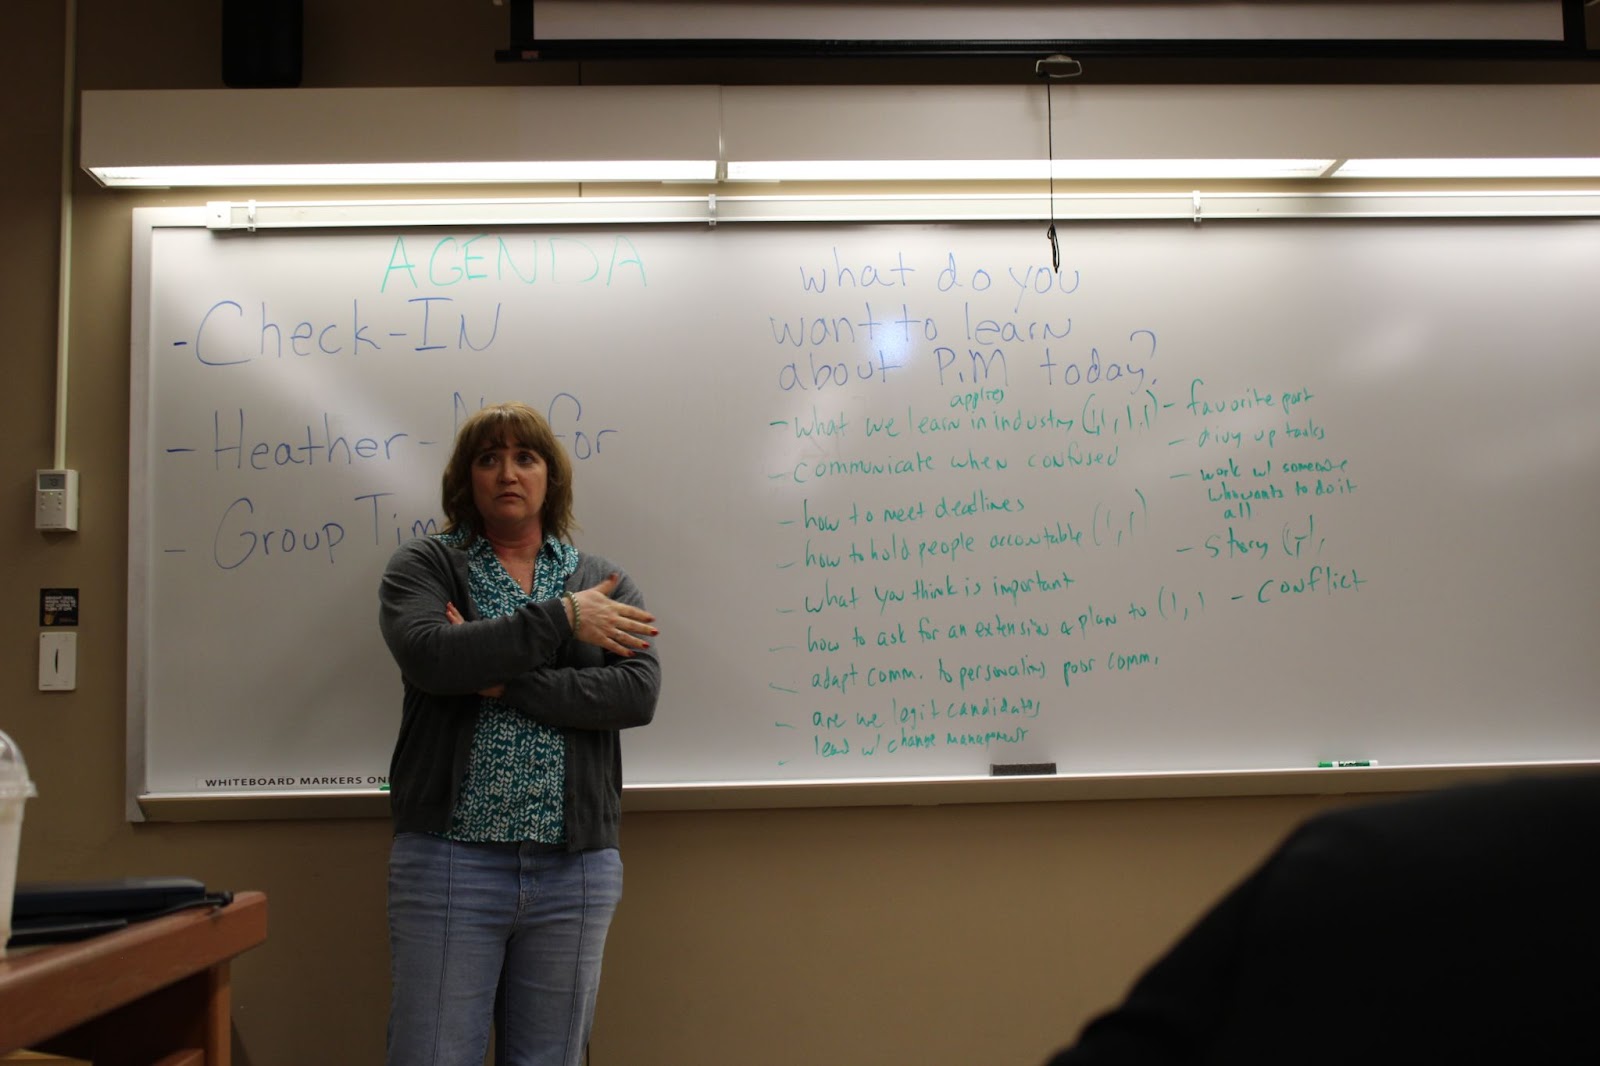 AGENDA
- Check-IN
- Heather - for
- Group Tim
WHITEBOARD MARKERS ON
what do you
want to learn
about P.M today?
applies
- what we learn in industry (1, 1, 1, 1)
- communicate when confused
- how to meet deadlines
- how to hold people accountable (1, 1)
- what you think is important
- how to ask for an extension & plan to (1, 1
- adapt comm. to personalities poor comm.
- are we legit candidates
- lead w/ change management
- favorite part
- divy up tasks
- work w/ someone
who wants to do it
all
- Story
- conflict